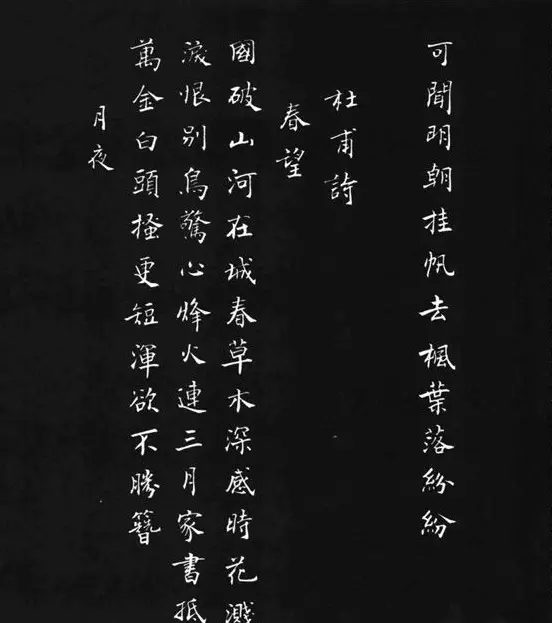 可聞明朝挂帆去楓葉落紛紛
杜甫詩
春望
國破山河在城春草木深感時花濺
淚恨别鳥驚心烽火連三月家書抵
萬金白頭搔更短渾欲不勝簪
月夜